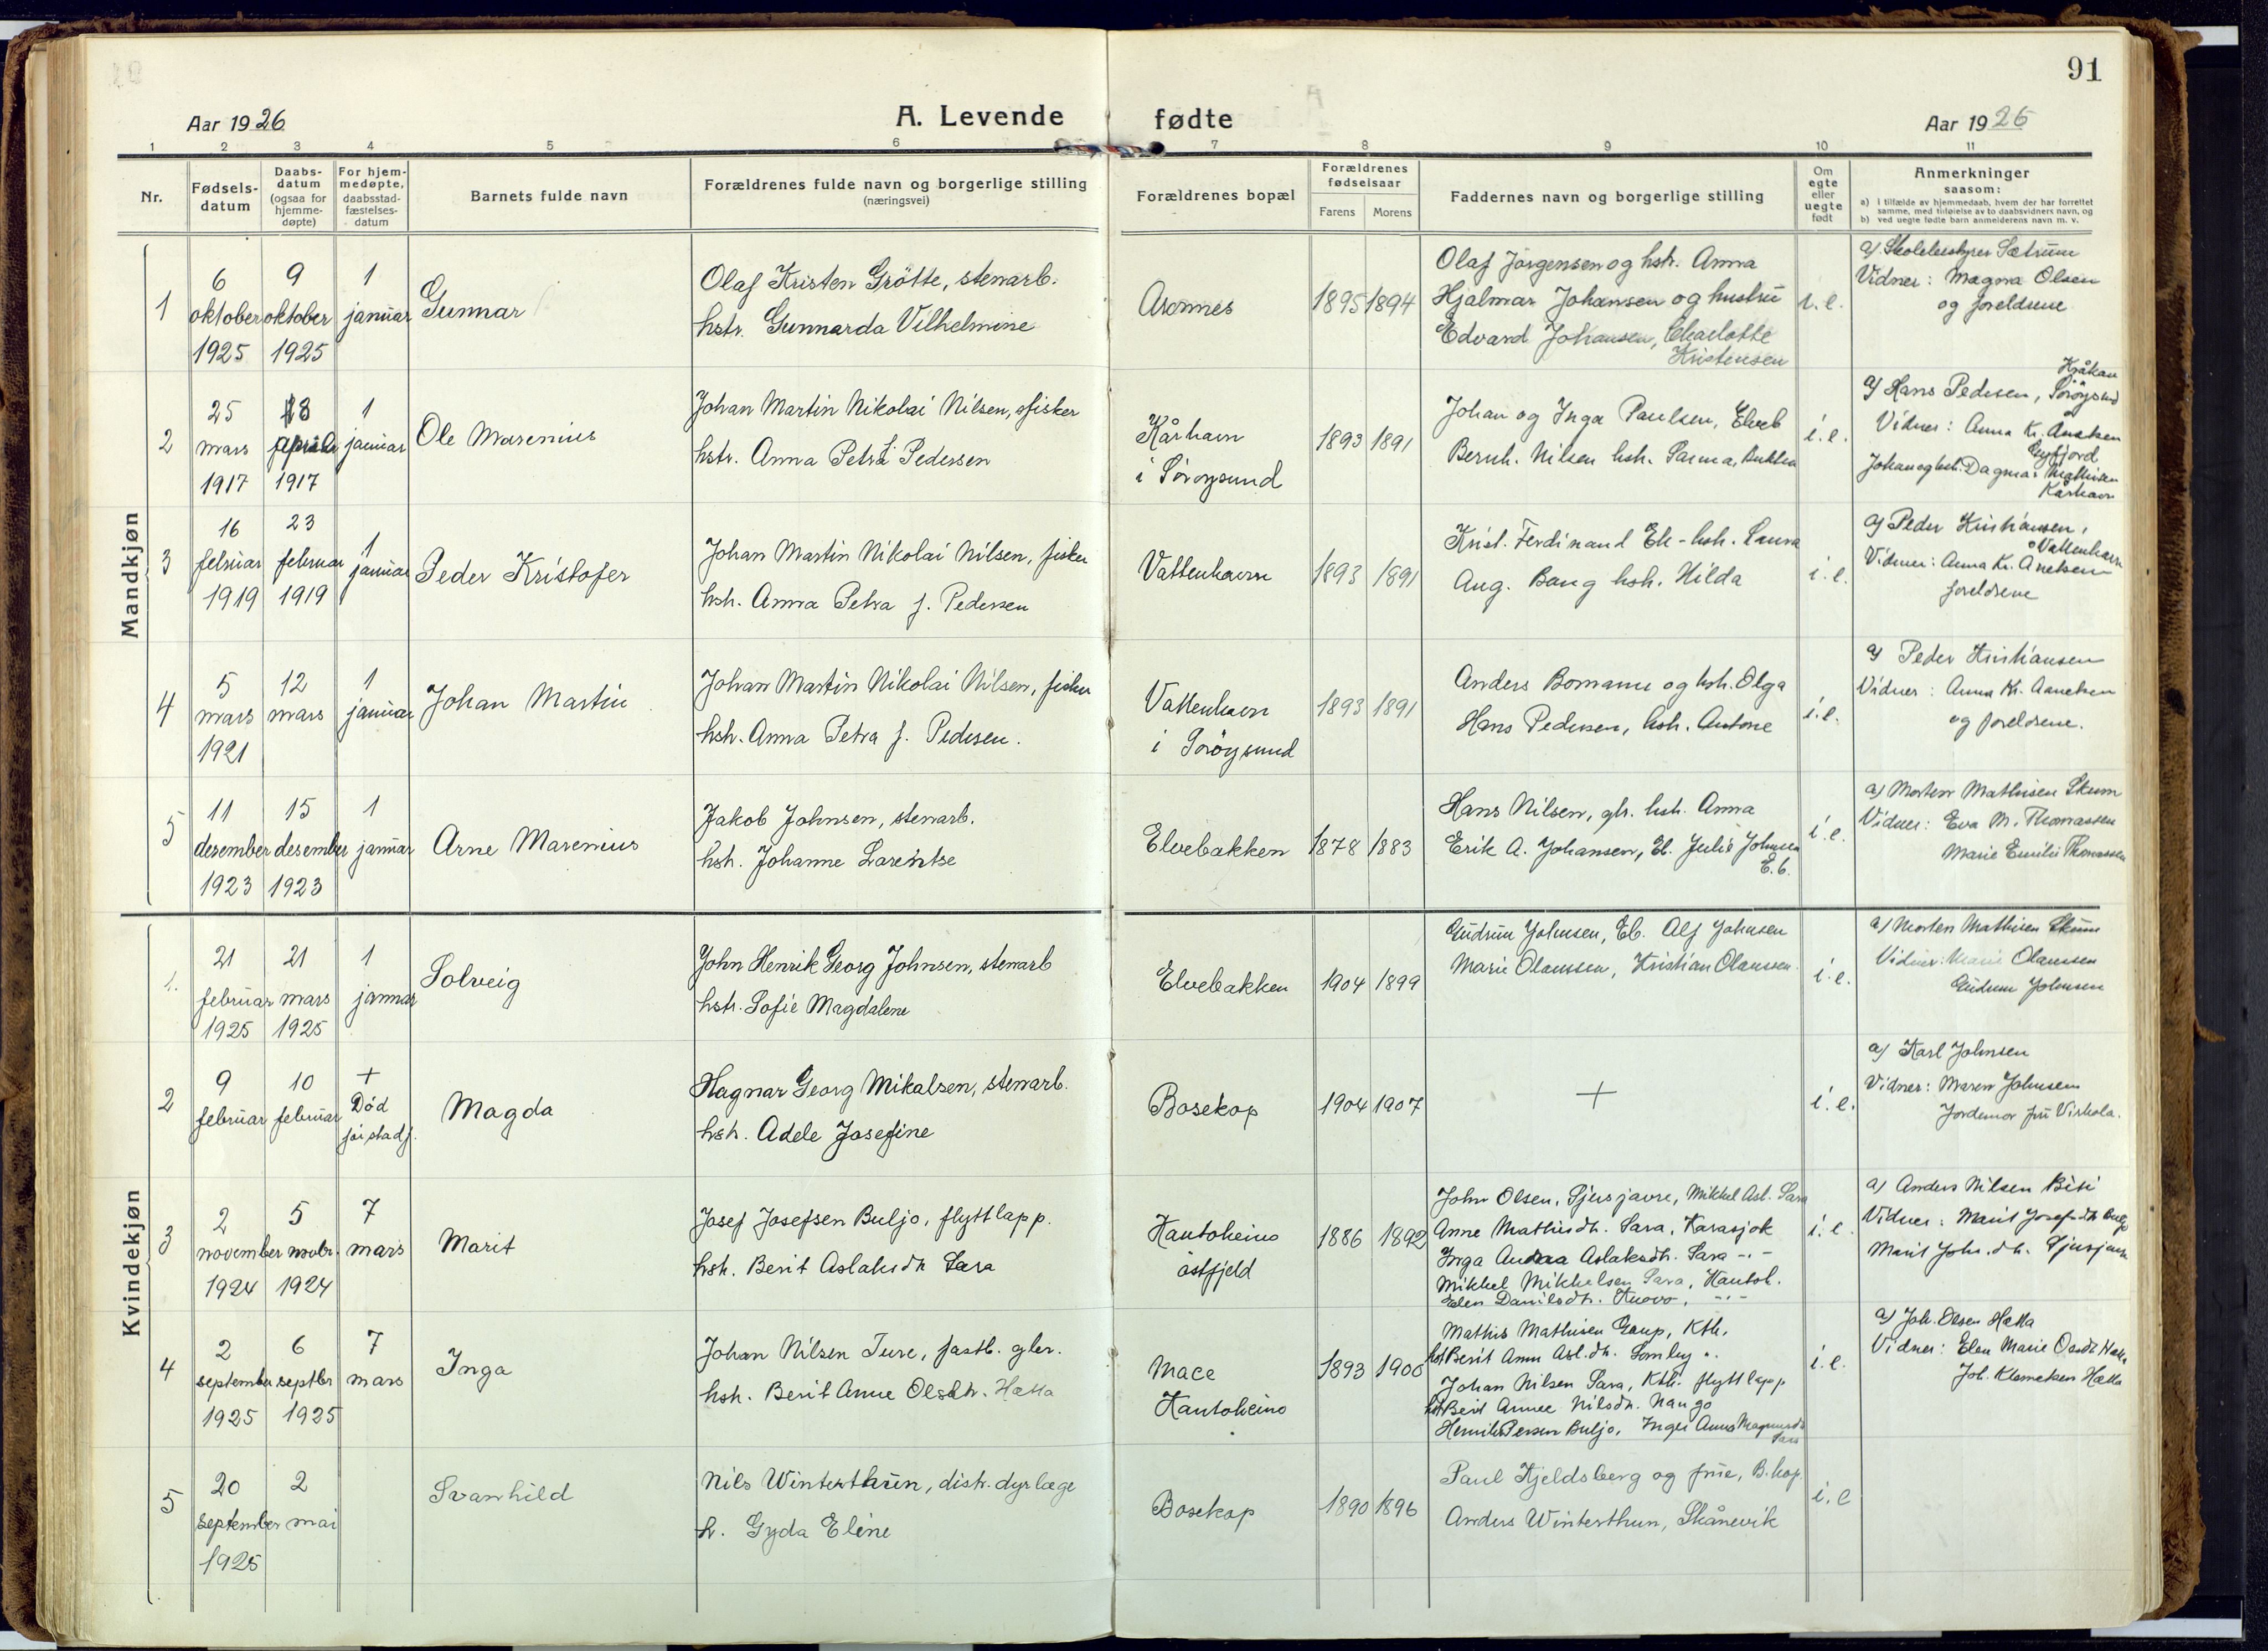 91
Aar 1926
A. Levende fødte
Aar 1926
1 2 3 4 5 6 7 8 9 10 11
Nr.
Fødsels-
datum
Daabs-
datum
(ogsaa for
hjemme-
døpte)
For hjem-
medøpte,
daabsstad-
fæstelses-
datum
Barnets fulde navn
Forældrenes fulde navn og borgerlige stilling
(næringsvei)
Forældrenes bopæl
Forældrenes
fødselsaar
Farens Morens
Faddernes navn og borgerlige stilling
Om
egte
eller
uegte
født
Anmerkninger
saasom:
a) i tilfælde av hjemmedaab, hvem der har forrettet
samme, med tilføielse av to daabsvidners navn, og
b) ved uegte fødte barn anmelderens navn m. v.
Mandkjøn
1
6
oktober
1925
9
oktober
1925
1
januar
Gunnar
Olaf Kristen Grötte, stenarb.
hstr. Gunnarda Vilhelmine
Aronnes
1895 1894
Olaf Jörgensen og hstr. Anna
Hjalmar Johansen og hustru
Edvard Johansen, Charlotte
Kristensen
i. e.
a) Skolebestyrer Sætrum
Vidner: Magna Olsen
og foreldrene
2
25
mars
1917
8
april
1917
1
januar
Ole Marenius
Johan Martin Nikolai Nilsen, fisker
hstr. Anna Petra f. Pedersen
Kårhavn
i Söröysund
1893 1891
Johan og Inga Paulsen, Elveb
Bernh. Nilsen hstr. Sanna,
i. e.
a) Hans Pedersen, Kråkav
Söröysund
Vidner: Anna Kr.
Johan og hst. Dagmar Mathisen
Kårhavn
3
16
februar
1919
23
februar
1919
1
januar
Peder Kristofer
Johan Martin Nikolai Nilsen, fisker
hstr. Anna Petra f. Pedersen
Vattenhavn
1893 1891
Krist. Ferdinand Ek - hstr. Laura
Aug. Bang hstr. Hilda
i. e.
a) Peder Kristiansen,
Vattenhavn
Vidner: Anna Kr. Anetsen
foreldrene
4
5
mars
1921
12
mars
1
januar
Johan Martin
Johan Martin Nikolai Nilsen, fisker
hstr. Anna Petra f. Pedersen.
Vattenhavn
i Söröysund
1893 1891
Anders Bomann og hstr. Olga
Hans Pedersen, hstr. Antone
i. e.
a) Peder Kristiansen
Vidner: Anna Kr. Aanetsen
og foreldrene.
5
11
desember
1923
15
desember
1923
1
januar
Arne Marenius
Jakob Johnsen, stenarb.
hstr. Johanne Larentse
Elvebakken
1878 1883
Hans Nilsen, gb. hstr. Anna
Erik A. Johansen, El. Julie Johnsen
E.b.
i. e.
a) Morten Mathisen Skum
Vidner: Eva M. Thomassen
Marie Emilie Thomassen
Kvindekjøn
1.
21
februar
1925
21
mars
1925
1
januar
Solveig
John Henrik Georg Johnsen, stenarb
hstr. Sofie Magdalene
Elvebakken
1904 1899
Gudrun Johnsen, Eb. Alf Johnsen
Marie Olaussen, Kristian Olaussen.
i. e.
a) Morten Mathisen Skum
Vidner: Marie Olaussen
Gudrun Johnsen
2
9
februar
10
februar
+
Död
för stadf.
Magda
Hagnar Georg Mikalsen, stenarb.
hstr. Adele Josefine
Bosekop
1904 1907
+
i. e.
a) Karl Johnsen
Vidner: Maren Johnsen
Jordmor fru Virkola.
3
2
november
1924
5
novbr.
1924
7
mars
Marit
Josef Josefsen Buljo, flyttlapp.
hstr. Berit Aslaksdtr Sara
Kautokeino
östfjeld
1886 1892
John Olsen, Sjusjavre, Mikkel Asl. Sara
Anne Mathisdtr. Sara, Karasjok
Inga Andrea Aslaksdtr. Sara -"-
Mikkel Mikkelsen Sara, Kautok.
Elen Danilsdtr. Kuovo, -"-
i. e.
a) Anders Nilsen Biti
Vidner: Marit Josefsdtr Buljo
Marit Joh. dtr. Sjusjavre
4
2
september
1925
6
septbr
1925
7
mars
Inga
Johan Nilsen Ture, fastb. gbr.
hstr. Berit Anne Olsdtr. Hætta
Mace
Kautokeino
1893 1900
Mathis Mathisen Gaup, Ktk.
hst Berit Anna Asl.dtr. Somby "
Johan Nilsen Sara, Ktk. flyttlapp
hst Berit Anne Nilsdtr. Nango
Henrik Persen Buljo, Inger Anna Magnusdtr
Sara
i. e.
a) Joh. Olsen Hætta
Vidner: Elen Marie Olsdtr Hætta
Joh. Klemetsen Hætta
5
20
september
1925
2
mai
Svanhild
Nils Winterthun, distr. dyrlæge
h. Gyda Eline
Bosekop
1890 1896
Paul Kjeldsberg og frue, B.kop.
Anders Winterthun, Skånevik
i. e